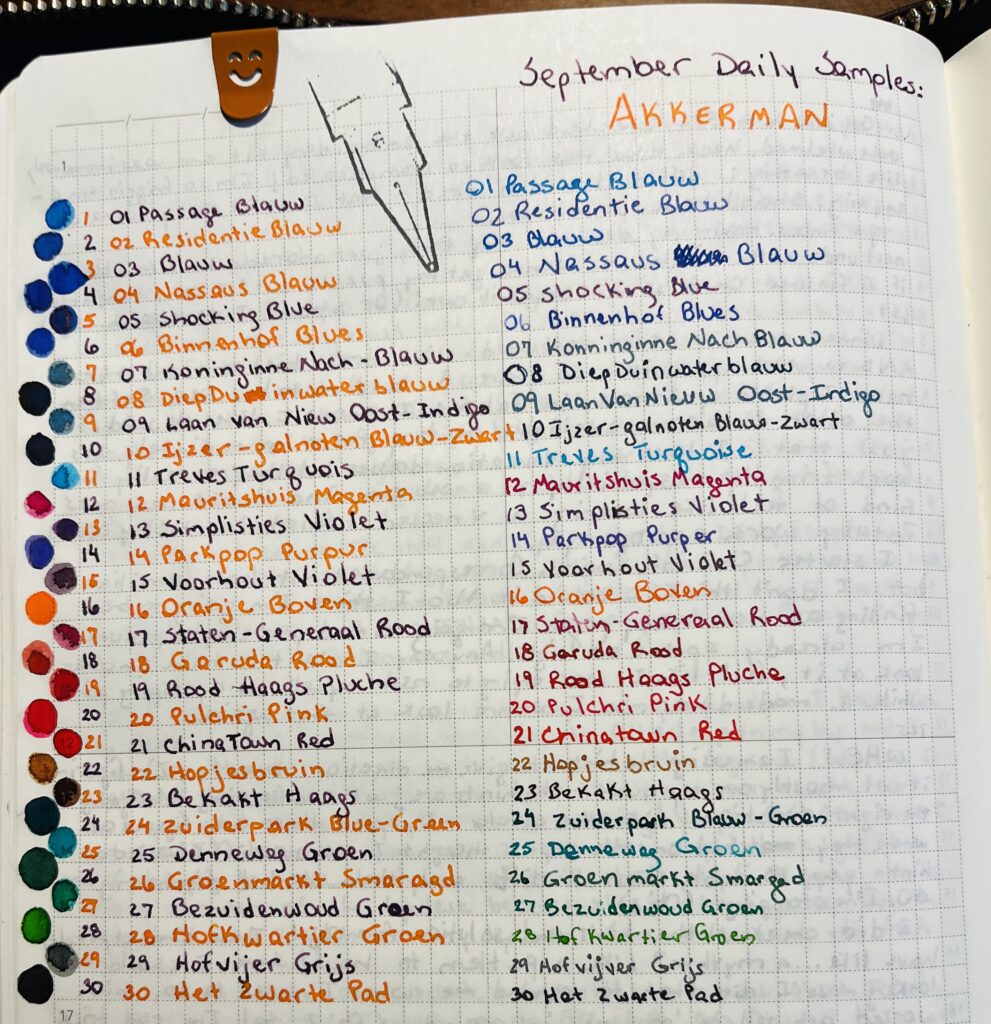 September Daily Samples:
AKKERMAN
1
1 01 Passage Blauw
2 02 Residentie Blauw
3 03 Blauw
4 04 Nassaus Blauw
5 05 Shocking Blue
6 06 Binnenhof Blues
7 07 Koninginne Nach-Blauw
8 08 DiepDuinwaterblauw
9 09 Laan van Niew Oost-Indigo
10 10 Ijzer-galnoten Blauw-Zwart
11 11 Treves Turquois
12 12 Mauritshuis Magenta
13 13 Simplisties Violet
14 14 Parkpop Purpur
15 15 Voorhout Violet
16 16 Oranje Boven
17 17 Staten-Generaal Rood
18 18 Garuda Rood
19 19 Rood Haags Pluche
20 20 Pulchri Pink
21 21 ChinaTown Red
22 22 Hopjesbruin
23 23 Bekakt Haags
24 24 Zuiderpark Blue-Green
25 25 Denneweg Groen
26 26 Groenmarkt Smaragd
27 27 Bezuidenwoud Groen
28 28 Hofkwartier Groen
29 29 Hofvijer Grijs
30 30 Het Zwarte Pad
17
01 Passage Blauw
02 Residentie Blauw
03 Blauw
04 Nassaus Blauw
05 Shocking Blue
06 Binnenhof Blues
07 Konninginne Nach Blauw
08 DiepDuinwaterblauw
09 Laan Van Nieuw Oost-Indigo
10 Ijzer-galnoten Blauw-Zwart
11 Treves Turquoise
12 Mauritshuis Magenta
13 Simplisties Violet
14 Parkpop Purper
15 Voorhout Violet
16 Oranje Boven
17 Staten-Generaal Rood
18 Garuda Rood
19 Rood Haags Pluche
20 Pulchri Pink
21 Chinatown Red
22 Hopjesbruin
23 Bekakt Haags
24 Zuiderpark Blauw-Groen
25 Denneweg Groen
26 Groenmarkt Smargad
27 Bezuidenwoud Groen
28 Hof Kwartier Groen
29 Hofvijver Grijs
30 Het Zwarte Pad